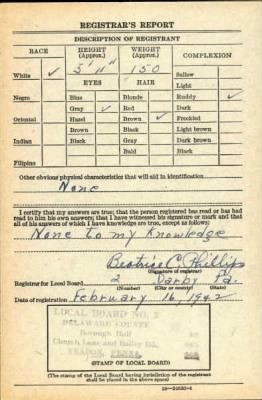 REGISTRAR'S REPORT
DESCRIPTION OF REGISTRANT
RACE HEIGHT (Approx.) WEIGHT (Approx.) COMPLEXION
White ✓ 5' 11" 150 Sallow
EYES HAIR Light
Negro Blue Blonde Ruddy ✓
Gray ✓ Red Dark
Oriental Hazel Brown ✓ Freckled
Brown Black Light brown
Indian Black Gray Dark brown
Bald Black
Filipino
Other obvious physical characteristics that will aid in identification
None
I certify that my answers are true; that the person registered has read or has had
read to him his own answers; that I have witnessed his signature or mark and that
all of his answers of which I have knowledge are true, except as follows:
None to my Knowledge
Beatrice C. Phillips
(Signature of registrar)
Registrar for Local Board 2 Darby Pa.
(Number) (City or county) (State)
Date of registration February 16, 1942
LOCAL BOARD NO. 2
DELAWARE COUNTY
Borough Hall
Church Lane and Bailey Rd.
YEADON, PENNA.
(STAMP OF LOCAL BOARD)
(The stamp of the Local Board having jurisdiction of the registrant
shall be placed in the above space)